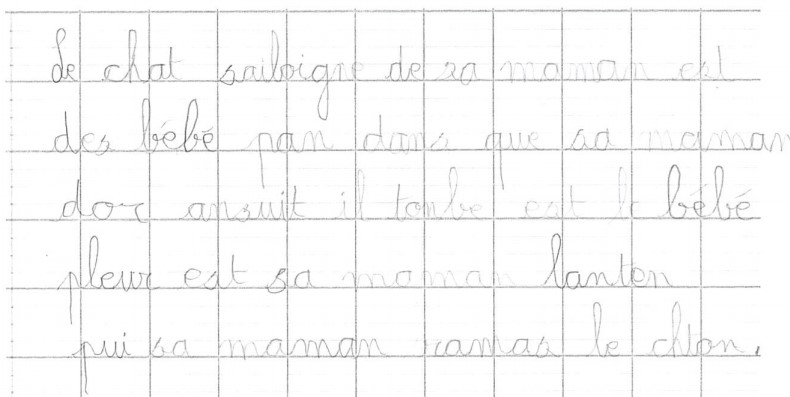 Le chat sailoigne de sa maman est
des bébé pan dans que sa maman
dor ansuit il tonbe est le bébé
pleur est sa maman lanten
pui sa maman ramas le chton.